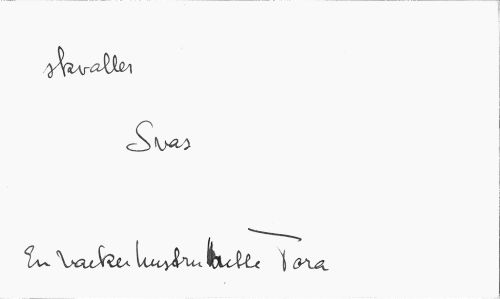 skvaller
Svas
En vacker hustru hette Tora